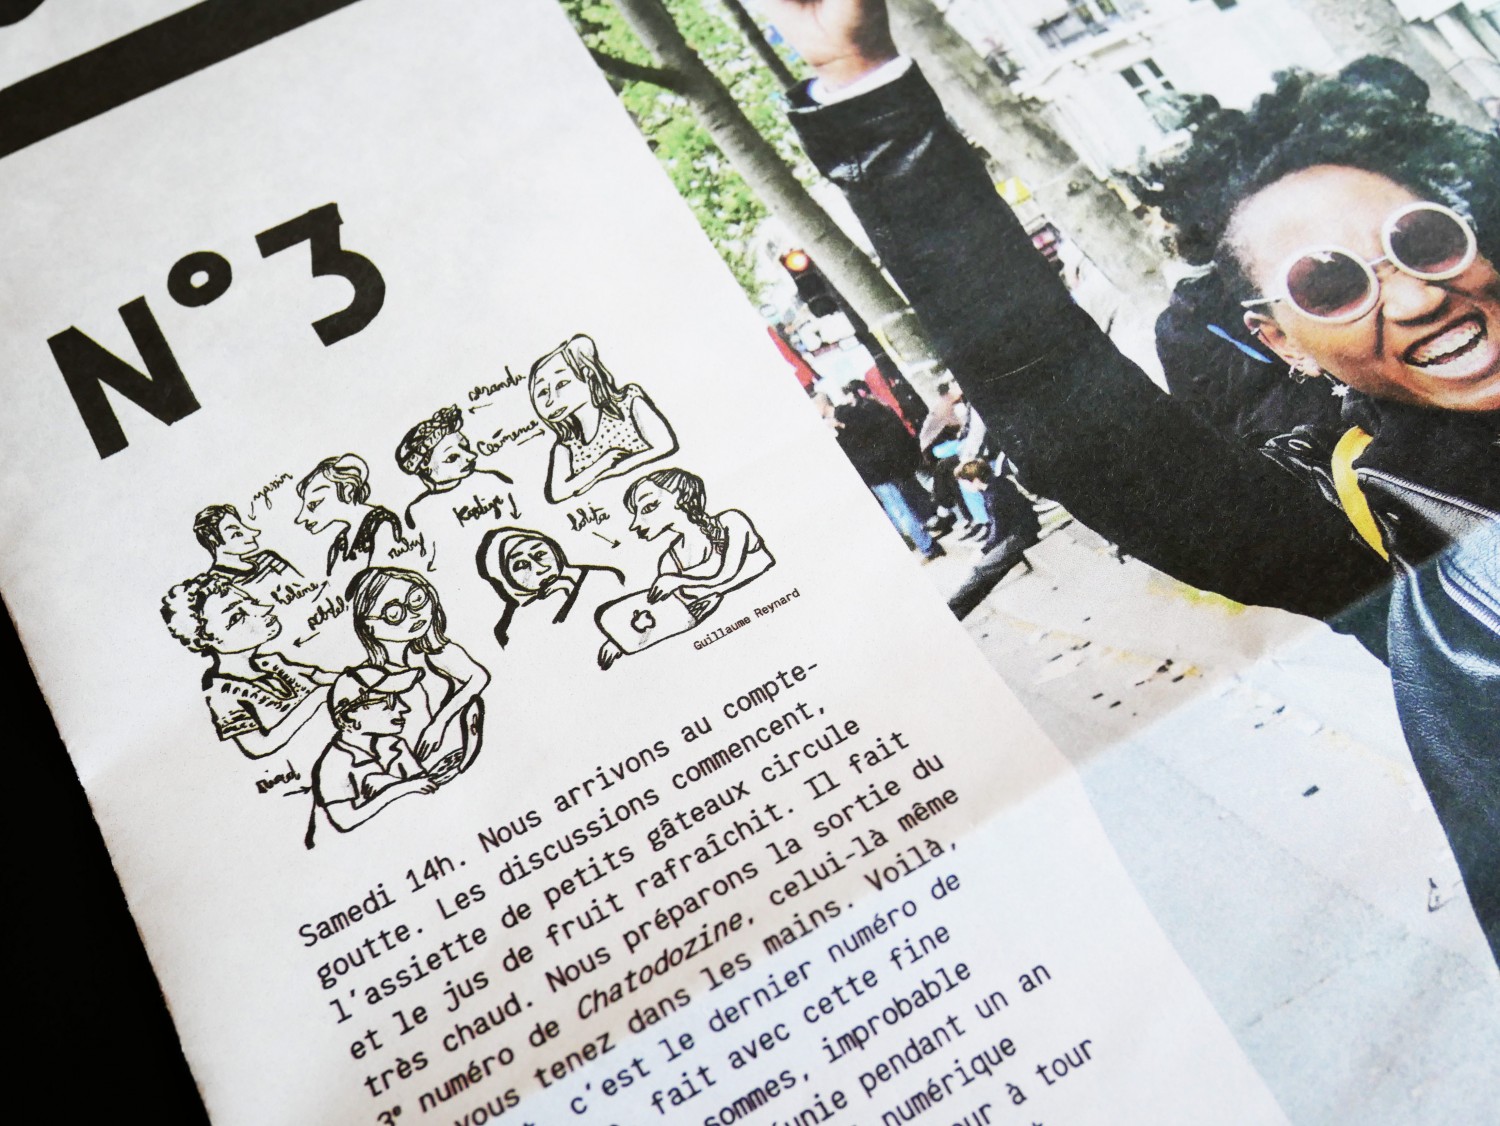 N°3
Clémence
yassin
Kadija
lolita
ruby
hélène
Guillaume Reynard
Samedi 14h. Nous arrivons au compte-
goutte. Les discussions commencent,
l'assiette de petits gâteaux circule
et le jus de fruit rafraîchit. Il fait
très chaud. Nous préparons la sortie du
3e numéro de Chatodozine, celui-là même
vous tenez dans les mains. Voilà,
c'est le dernier numéro de
fait avec cette fine
sommes, improbable
pendant un an
numérique
à tour